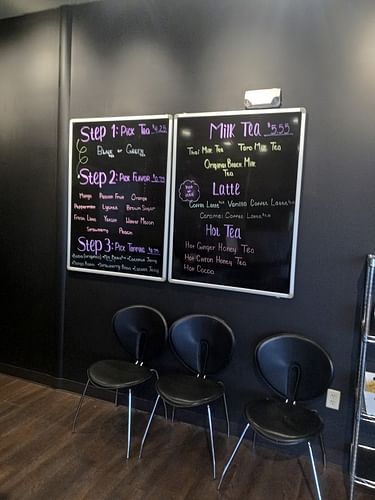 Step 1: Pick Tea $4.25
Black or Green
Step 2: Pick Flavor $0.75
Mango Passion Fruit Orange
Peppermint Lychee Brown Sugar
Winter Melon
Strawberry Peach
Step 3: Pick Topping
Milk Tea $5.55
Thai Milk Tea Taro Milk Tea
Original Black Milk
Tea
Latte
Coffee Latte Vanilla Coffee Latte
Caramel Coffee Latte
Hot Tea
Hot Ginger Honey Tea
Hot Citron Honey Tea
Hot Cocoa